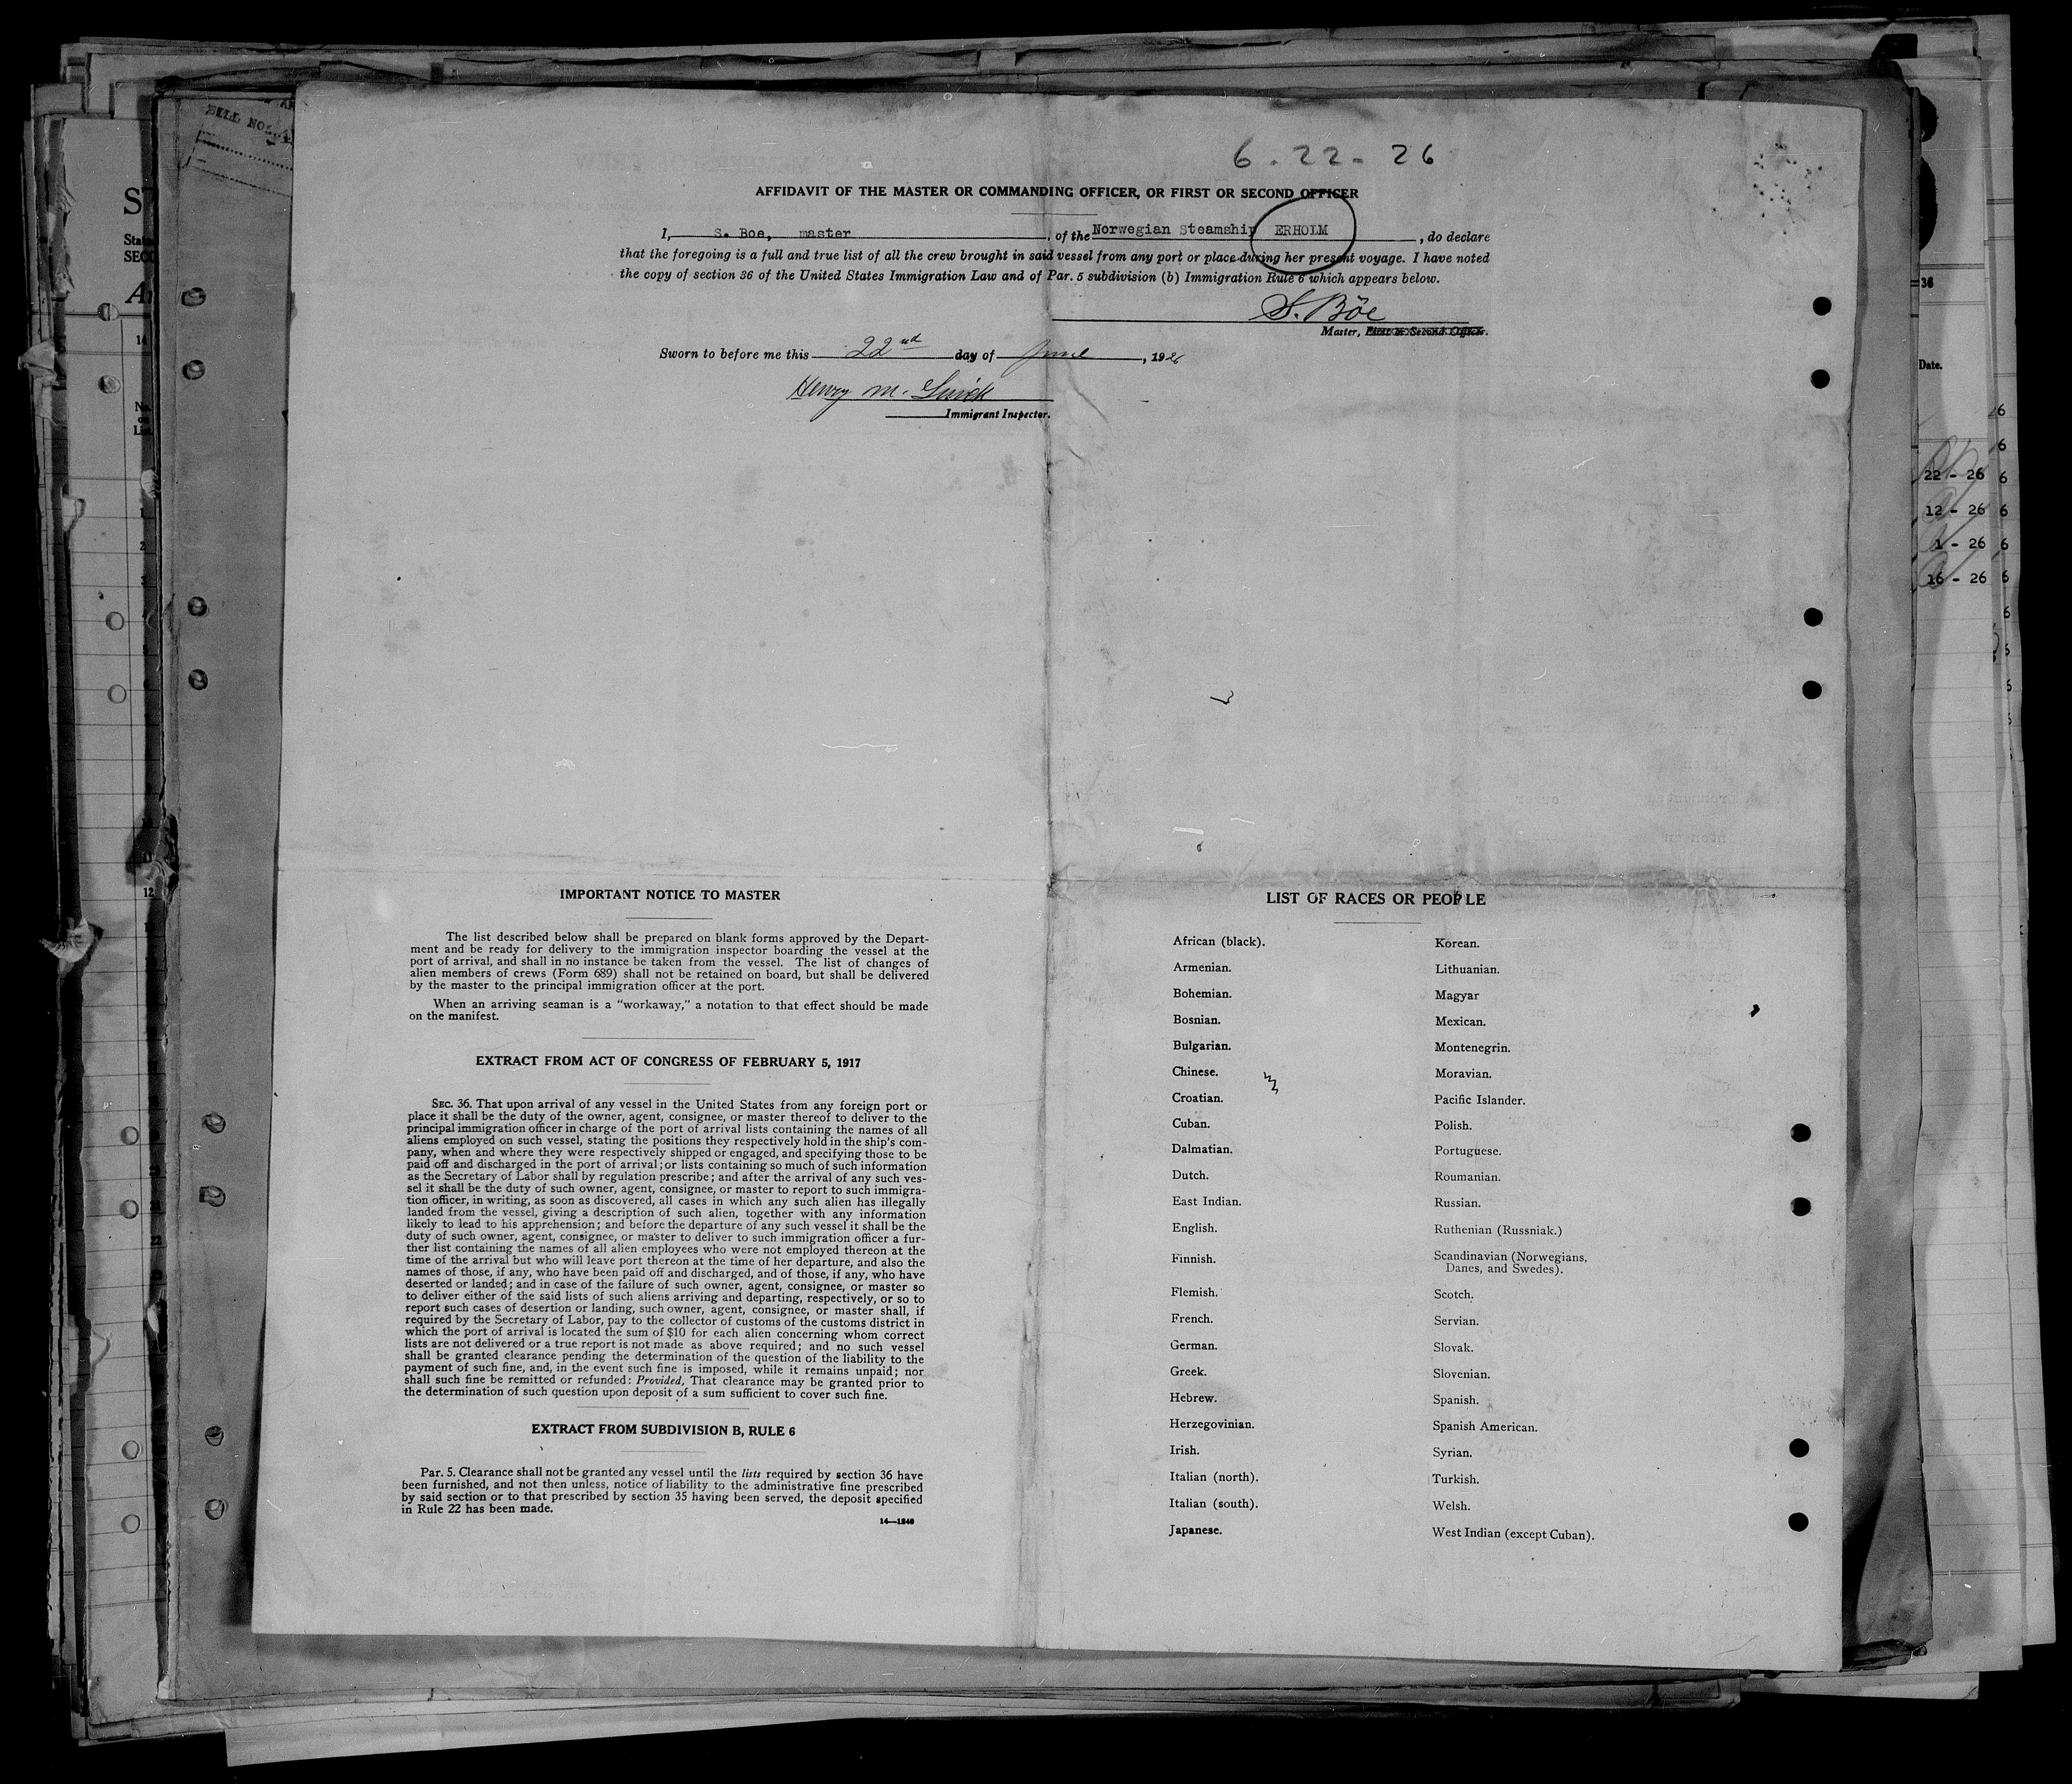 BILL NO.
6 - 22 - 26
AFFIDAVIT OF THE MASTER OR COMMANDING OFFICER, OR FIRST OR SECOND OFFICER
I, S. Boe, master , of the Norwegian Steamship ERHOLM , do declare
that the foregoing is a full and true list of all the crew brought in said vessel from any port or place during her present voyage. I have noted
the copy of section 36 of the United States Immigration Law and of Par. 5 subdivision (b) Immigration Rule 6 which appears below.
S. Böe
Master, First or Second Officer.
Sworn to before me this 22nd day of June , 1926
Henry M.
Immigrant Inspector.
IMPORTANT NOTICE TO MASTER
The list described below shall be prepared on blank forms approved by the Depart-
ment and be ready for delivery to the immigration inspector boarding the vessel at the
port of arrival, and shall in no instance be taken from the vessel. The list of changes of
alien members of crews (Form 689) shall not be retained on board, but shall be delivered
by the master to the principal immigration officer at the port.
When an arriving seaman is a "workaway," a notation to that effect should be made
on the manifest.
EXTRACT FROM ACT OF CONGRESS OF FEBRUARY 5, 1917
SEC. 36. That upon arrival of any vessel in the United States from any foreign port or
place it shall be the duty of the owner, agent, consignee, or master thereof to deliver to the
principal immigration officer in charge of the port of arrival lists containing the names of all
aliens employed on such vessel, stating the positions they respectively hold in the ship's com-
pany, when and where they were respectively shipped or engaged, and specifying those to be
paid off and discharged in the port of arrival; or lists containing so much of such information
as the Secretary of Labor shall by regulation prescribe; and after the arrival of any such ves-
sel it shall be the duty of such owner, agent, consignee, or master to report to such immigra-
tion officer, in writing, as soon as discovered, all cases in which any such alien has illegally
landed from the vessel, giving a description of such alien, together with any information
likely to lead to his apprehension; and before the departure of any such vessel it shall be the
duty of such owner, agent, consignee, or master to deliver to such immigration officer a fur-
ther list containing the names of all alien employees who were not employed thereon at the
time of the arrival but who will leave port thereon at the time of her departure, and also the
names of those, if any, who have been paid off and discharged, and of those, if any, who have
deserted or landed; and in case of the failure of such owner, agent, consignee, or master so
to deliver either of the said lists of such aliens arriving and departing, respectively, or so to
report such cases of desertion or landing, such owner, agent, consignee, or master shall, if
required by the Secretary of Labor, pay to the collector of customs of the customs district in
which the port of arrival is located the sum of $10 for each alien concerning whom correct
lists are not delivered or a true report is not made as above required; and no such vessel
shall be granted clearance pending the determination of the question of the liability to the
payment of such fine, and, in the event such fine is imposed, while it remains unpaid; nor
shall such fine be remitted or refunded: Provided, That clearance may be granted prior to
the determination of such question upon deposit of a sum sufficient to cover such fine.
EXTRACT FROM SUBDIVISION B, RULE 6
Par. 5. Clearance shall not be granted any vessel until the lists required by section 36 have
been furnished, and not then unless, notice of liability to the administrative fine prescribed
by said section or to that prescribed by section 35 having been served, the deposit specified
in Rule 22 has been made.
14—1240
LIST OF RACES OR PEOPLE
African (black).
Armenian.
Bohemian.
Bosnian.
Bulgarian.
Chinese.
Croatian.
Cuban.
Dalmatian.
Dutch.
East Indian.
English.
Finnish.
Flemish.
French.
German.
Greek.
Hebrew.
Herzegovinian.
Irish.
Italian (north).
Italian (south).
Japanese.
Korean.
Lithuanian.
Magyar
Mexican.
Montenegrin.
Moravian.
Pacific Islander.
Polish.
Portuguese.
Roumanian.
Russian.
Ruthenian (Russniak.)
Scandinavian (Norwegians,
Danes, and Swedes).
Scotch.
Servian.
Slovak.
Slovenian.
Spanish.
Spanish American.
Syrian.
Turkish.
Welsh.
West Indian (except Cuban).
36
Date.
22 - 26
12 - 26
1 - 26
16 - 26